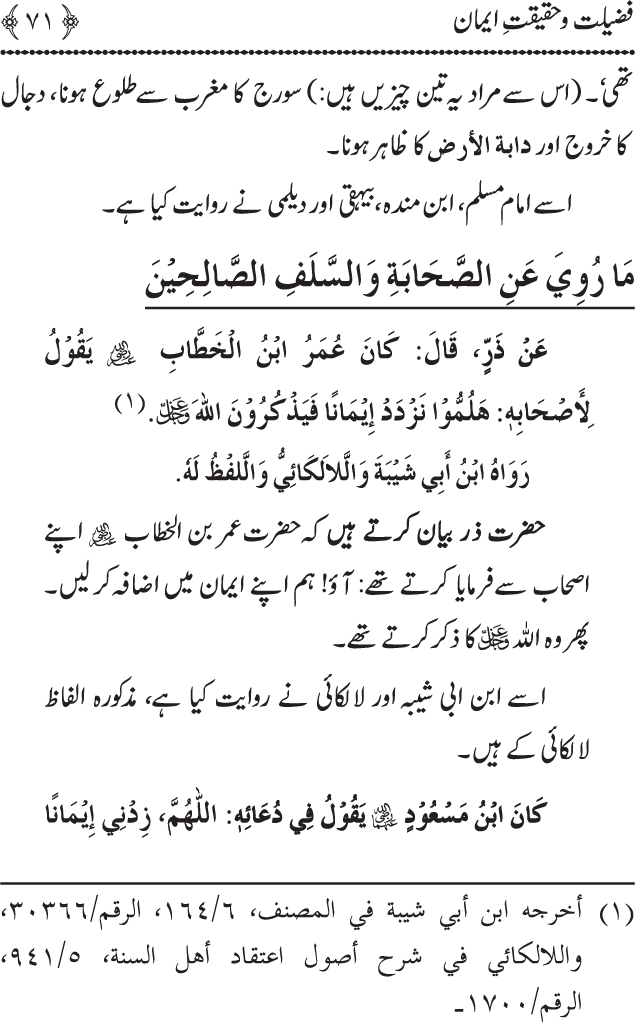 فضیلت و حقیقتِ ایمان ﴿۷۱﴾
تھی‘۔ (اس سے مراد یہ تین چیزیں ہیں:) سورج کا مغرب سے طلوع ہونا، دجال
کا خروج اور دابة الأرض کا ظاہر ہونا۔
اسے امام مسلم، ابن مندہ، بیہقی اور دیلمی نے روایت کیا ہے۔
مَا رُوِيَ عَنِ الصَّحَابَةِ وَالسَّلَفِ الصَّالِحِيْنَ
عَنْ ذَرٍّ، قَالَ: كَانَ عُمَرُ ابْنُ الْخَطَّابِ رضی اللہ عنہ يَقُوْلُ
لِأَصْحَابِهٖ: هَلُمُّوْا نَزْدَدْ إِيْمَانًا فَيَذْكُرُوْنَ اللهَ عزوجل. (١)
رَوَاهُ ابْنُ أَبِي شَيْبَةَ وَاللَّالَكَائِيُّ وَاللَّفْظُ لَهٗ.
حضرت ذر بیان کرتے ہیں کہ حضرت عمر بن الخطاب رضی اللہ عنہ اپنے
اصحاب سے فرمایا کرتے تھے: آؤ! ہم اپنے ایمان میں اضافہ کر لیں۔
پھر وہ اللہ عزوجل کا ذکر کرتے تھے۔
اسے ابن ابی شیبہ اور لالکائی نے روایت کیا ہے، مذکورہ الفاظ
لالکائی کے ہیں۔
كَانَ ابْنُ مَسْعُوْدٍ رضی اللہ عنہ يَقُوْلُ فِي دُعَائِهٖ: اَللّٰهُمَّ، زِدْنِي إِيْمَانًا
(١) أخرجه ابن أبي شيبة في المصنف، ٦/١٦٤، الرقم/٣٠٣٦٦،
واللالكائي في شرح أصول اعتقاد أهل السنة، ٥/٩٤١،
الرقم/١٧٠٠۔